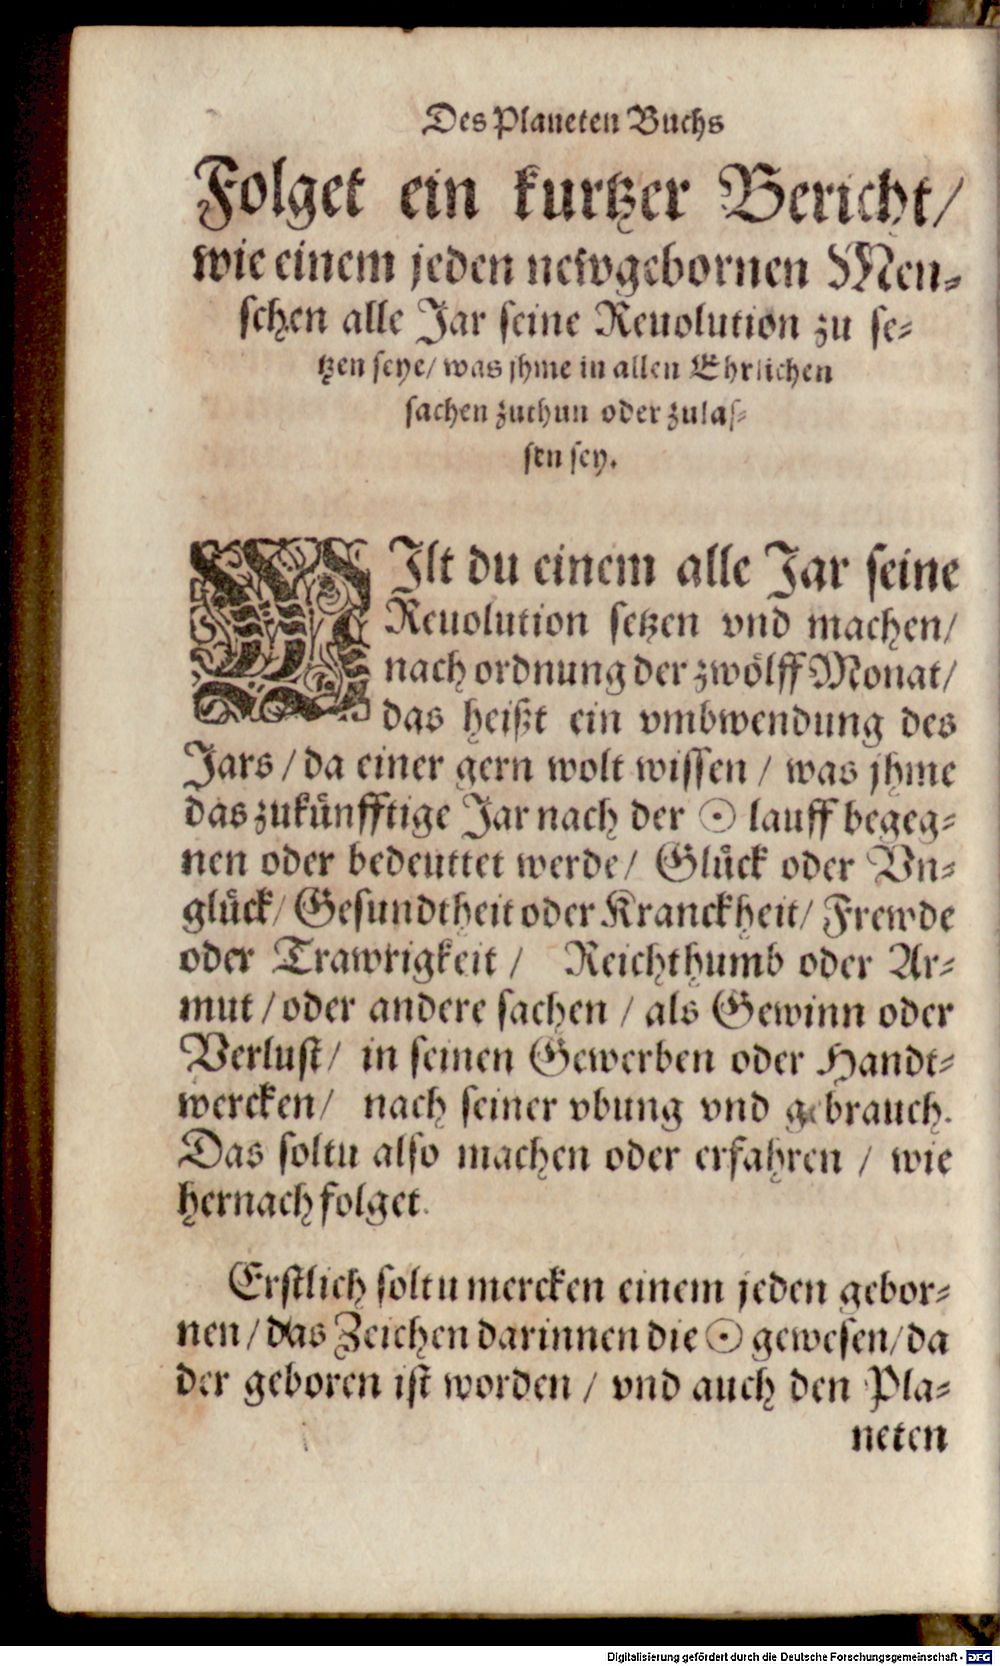 Des Planeten Buchs
Folget ein kurtzer Bericht/
wie einem jeden newgebornen Men-
schen alle Jar seine Reuolution zu se-
tzen seye/ was jhme in allen Ehrlichen
sachen zuthun oder zulas-
sen sey.
WIlt du einem alle Jar seine
Reuolution setzen vnd machen/
nach ordnung der zwölff Monat/
das heißt ein vmbwendung des
Jars / da einer gern wolt wissen / was jhme
das zukünfftige Jar nach der ☉ lauff begeg-
nen oder bedeuttet werde/ Glück oder Vn-
glück/ Gesundtheit oder Kranckheit/ Frewde
oder Trawrigkeit / Reichthumb oder Ar-
mut / oder andere sachen / als Gewinn oder
Verlust/ in seinen Gewerben oder Handt-
wercken/ nach seiner vbung vnd gebrauch.
Das soltu also machen oder erfahren / wie
hernach folget.
Erstlich soltu mercken einem jeden gebor-
nen / das Zeichen darinnen die ☉ gewesen/ da
der geboren ist worden / vnd auch den Pla-
neten
Digitalisierung gefördert durch die Deutsche Forschungsgemeinschaft - DFG